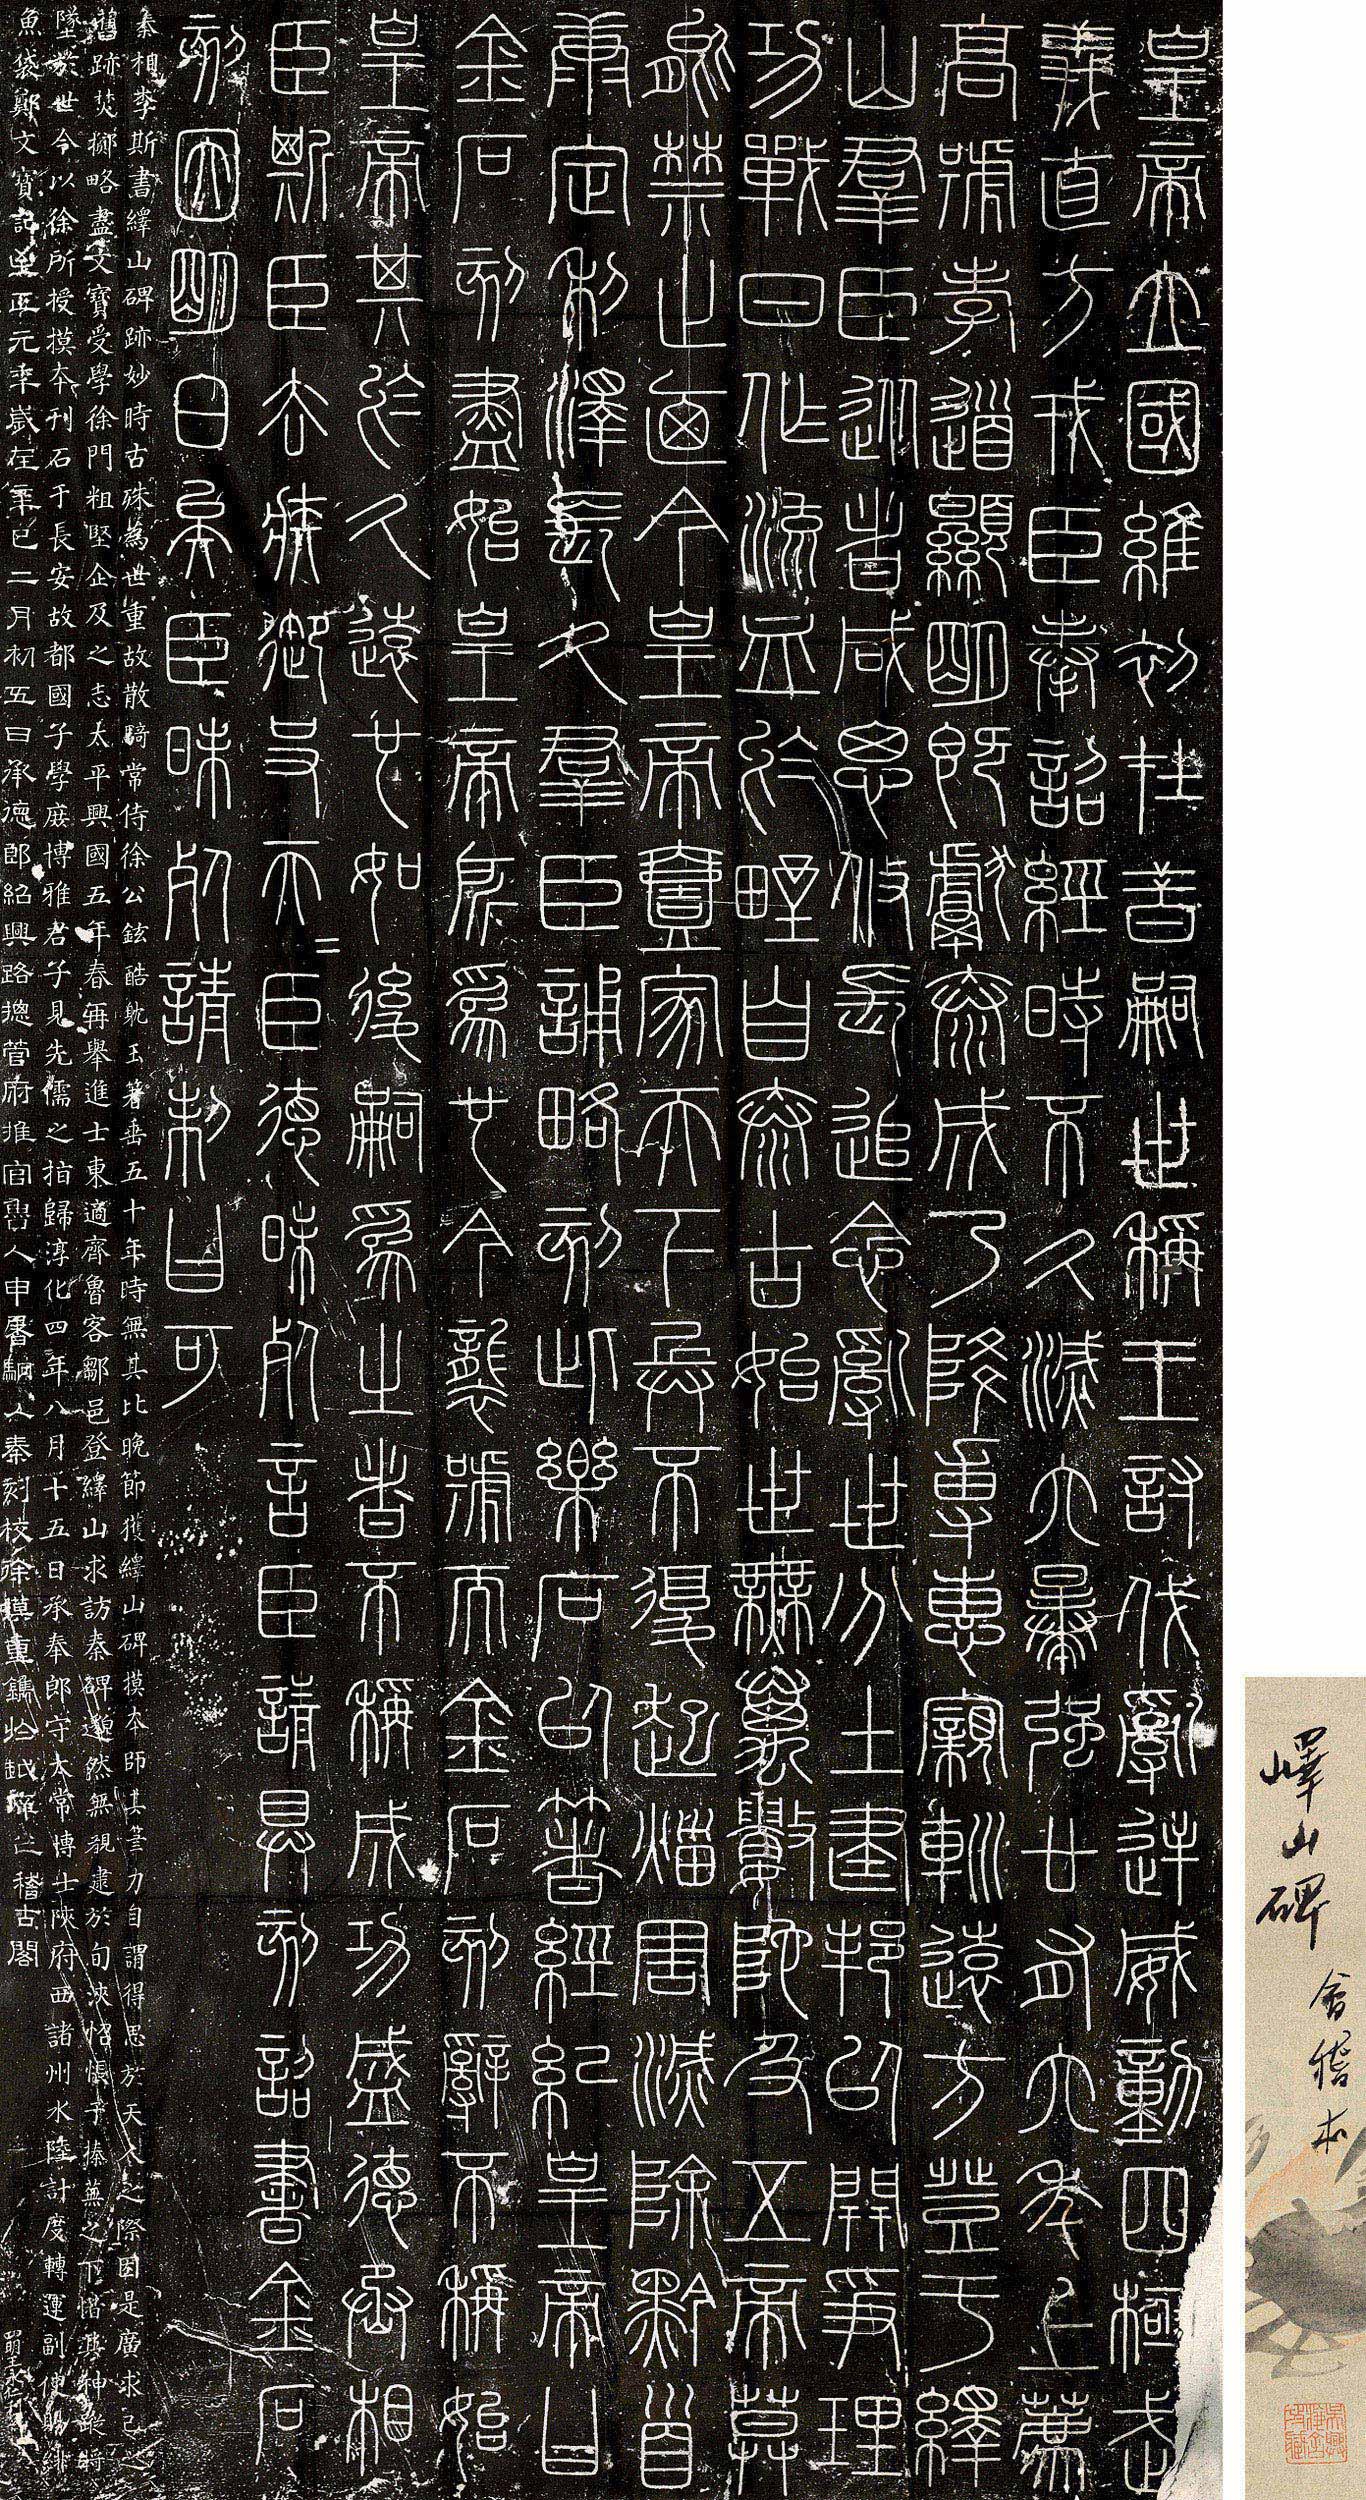 嶧山碑
會稽本
皇帝立國維初在昔嗣世稱王討伐亂逆威動四極武
義直方戎臣奉詔經時不久滅六暴強廿有六年上薦
高號孝道顯明既獻泰成乃降專惠親巡遠方登于繹
山羣臣從者咸思攸長追念亂世分土建邦以開爭理
功戰日作流血於野自泰古始世無萬數陀及五帝莫
能禁止廼今皇帝壹家天下兵不復起烖害滅除黔首
康定利澤長久羣臣誦略刻此樂石以著經紀皇帝曰
金石刻盡始皇帝所為也今襲號而金石刻辭不稱始
皇帝其於久遠也如後嗣為之者不稱成功盛德丞相
臣斯臣去疾御史夫=臣德昧死言臣請具刻詔書金石
刻因明白矣臣昧死請制曰可
秦相李斯書繹山碑跡妙時古殊為世重故散騎常侍徐公鉉酷躭玉箸垂五十年時無其比晚節獲繹山碑摸本師其筆力自謂得思於天人之際因是廣求己之
舊跡焚擲略盡文寶受學徐門粗堅企及之志太平興國五年春再舉進士東適齊魯客鄒邑登繹山求訪秦碑邈然無覩逮於旬浹怊悵于榛蕪之下惜其神蹤將
墜於世今以徐所授摸本刊石于長安故都國子學庶博雅君子見先儒之指歸淳化四年八月十五日承奉郎守太常博士陝府西諸州水陸計度轉運副使賜緋
魚袋鄭文寶記至正元年歲在辛巳二月初五日承德郎紹興路總管府推官曹人申屠駉以秦刻校徐摸重鐫於越庠之稽古閣